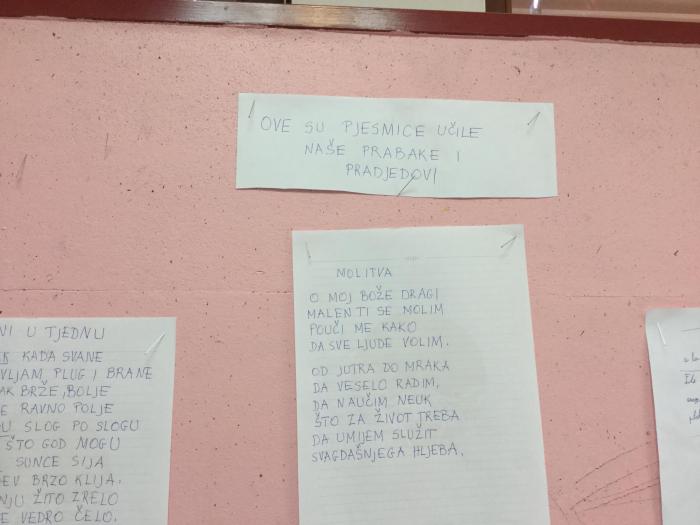 OVE SU PJESMICE UČILE
NAŠE PRABAKE I
PRADJEDOVI
MOLITVA
O MOJ BOŽE DRAGI
MALEN TI SE MOLIM
POUČI ME KAKO
DA SVE LJUDE VOLIM.
OD JUTRA DO MRAKA
DA VESELO RADIM,
DA NAUČIM, NEUK
ŠTO ZA ŽIVOT TREBA
DA UMIJEM SLUŽIT
SVAGDAŠNJEGA HLJEBA.
NI U TJEDNU
KADA SVANE
VLJAM, PLUG I BRANE
BRŽE, BOLJE
RAVNO POLJE
SLOG PO SLOGU
ŠTO GOD MOGU
SUNCE SIJA
BRZO KLIJA.
ŽITO ZRELO
VEDRO ČELO.